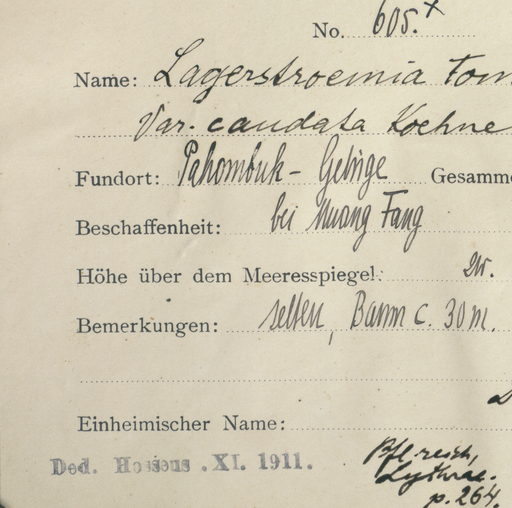 No. 605.x
Name: Lagerstroemia Tom
Var. caudata Koehne
Fundort: Pahombuk- Gebirge Gesamme
Beschaffenheit: bei Muang Fang
Höhe über dem Meeresspiegel:
Bemerkungen: selten, Baum c. 30 m.
Einheimischer Name:
Ded. Hosseus .XI. 1911.
Pfl. reich,
Lythrac.
p. 264.